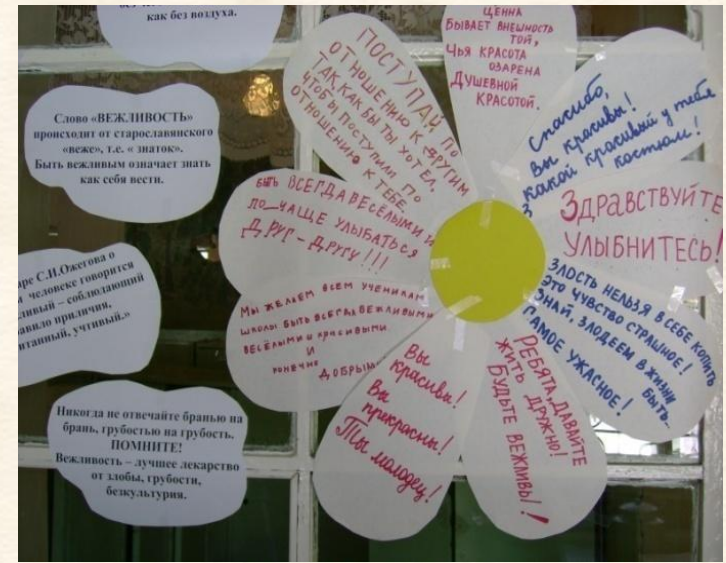 как без воздуха.
Слово «ВЕЖЛИВОСТЬ»
происходит от старославянского
«веже», т.е. « знаток».
Быть вежливым означает знать
как себя вести.
ре С.И.Ожегова о
человеке говорится
ливый – соблюдающий
авило приличия,
итанный, учтивый.»
Никогда не отвечайте бранью на
брань, грубостью на грубость.
ПОМНИТЕ!
Вежливость – лучшее лекарство
от злобы, грубости,
бескультурия.
ЦЕННА
БЫВАЕТ ВНЕШНОСТЬ
ТОЙ,
ЧЬЯ КРАСОТА
ОЗАРЕНА
ДУШЕВНОЙ
КРАСОТОЙ.
Спасибо,
вы красивы!
какой красивый у тебя
костюм!
ЗДРАВСТВУЙТЕ
УЛЫБНИТЕСЬ!
ЗЛОСТЬ НЕЛЬЗЯ В СЕБЕ КОПИТЬ
ЭТО ЧУВСТВО СТРАШНОЕ!
ЗНАЙ, ЗЛОДЕЕМ В ЖИЗНИ
БЫТЬ.
САМОЕ УЖАСНОЕ!
РЕБЯТА, ДАВАЙТЕ
ЖИТЬ ДРУЖНО!
БУДЬТЕ ВЕЖЛИВЫ!!
Вы
красивы!
Вы
прекрасны!
Ты молодец!
МЫ ЖЕЛАЕМ ВСЕМ УЧЕНИКАМ
ШКОЛЫ БЫТЬ ВСЕГДА ВЕЖЛИВЫМИ
ВЕСЁЛЫМИ КРАСИВЫМИ
И
КОНЕЧНО
ДОБРЫМИ
БЫТЬ ВСЕГДА ВЕСЁЛЫМИ И
ПО-ЧАЩЕ УЛЫБАТЬСЯ
ДРУГ-ДРУГУ!!!
ПОСТУПАЙ ПО
ОТНОШЕНИЮ К ДРУГИМ
ТАК, КАК БЫ ТЫ ХОТЕЛ,
ЧТОБЫ ПОСТУПИЛИ ПО
ОТНОШЕНИЮ К ТЕБЕ